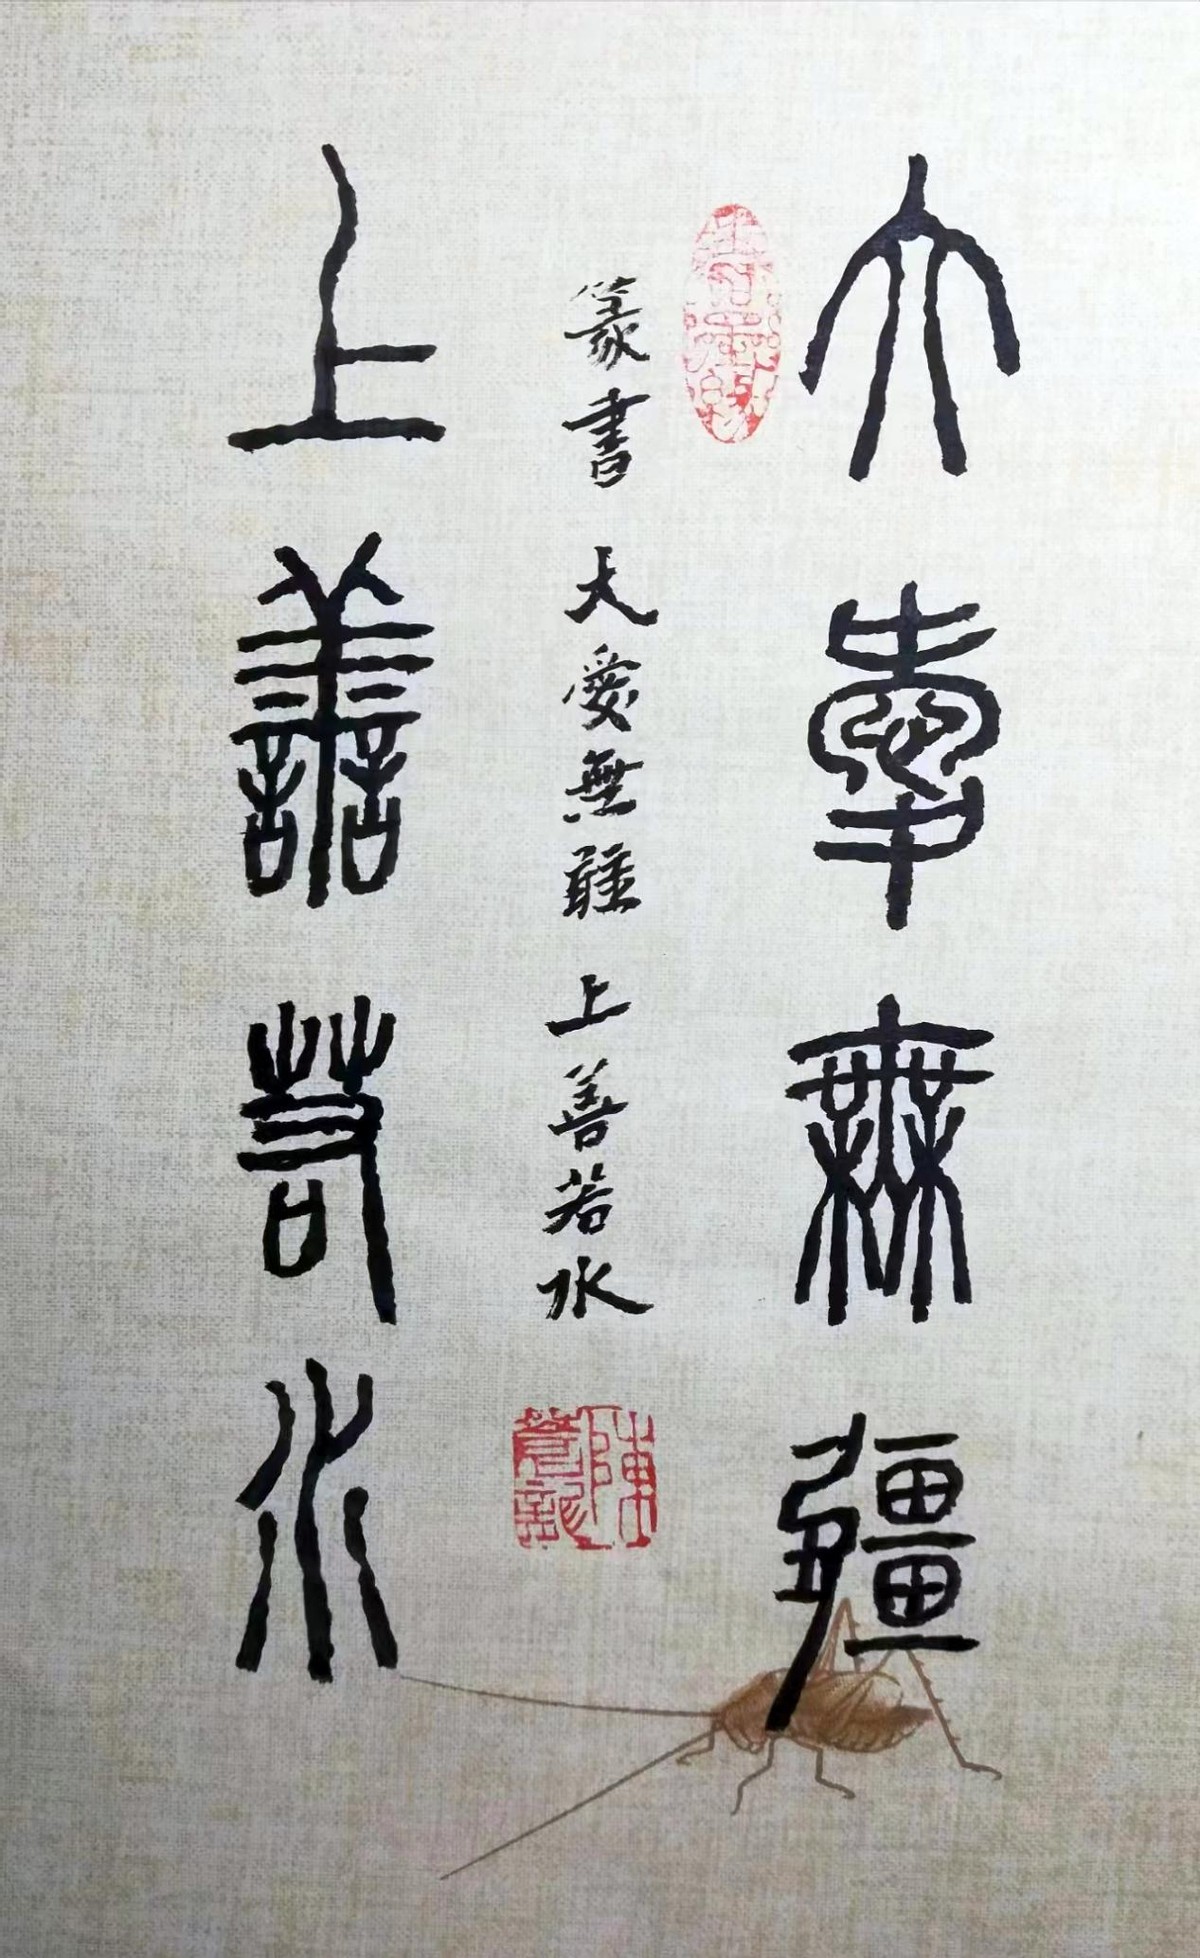 大愛無疆
篆書 大愛無疆 上善若水
陳
上善若水